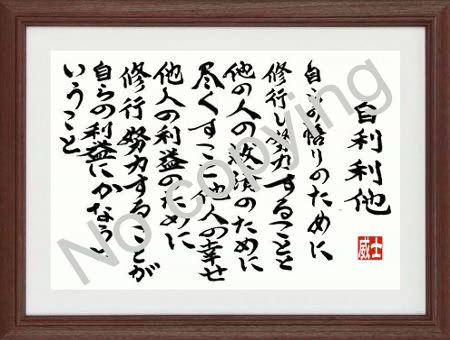 自利利他
自らの悟りのために
修行し努力することと
他の人の救済のために
尽くすこと他人の幸せ
他人の利益のために
修行 努力することが
自らの利益にかなうと
いうこと
威士
No copying